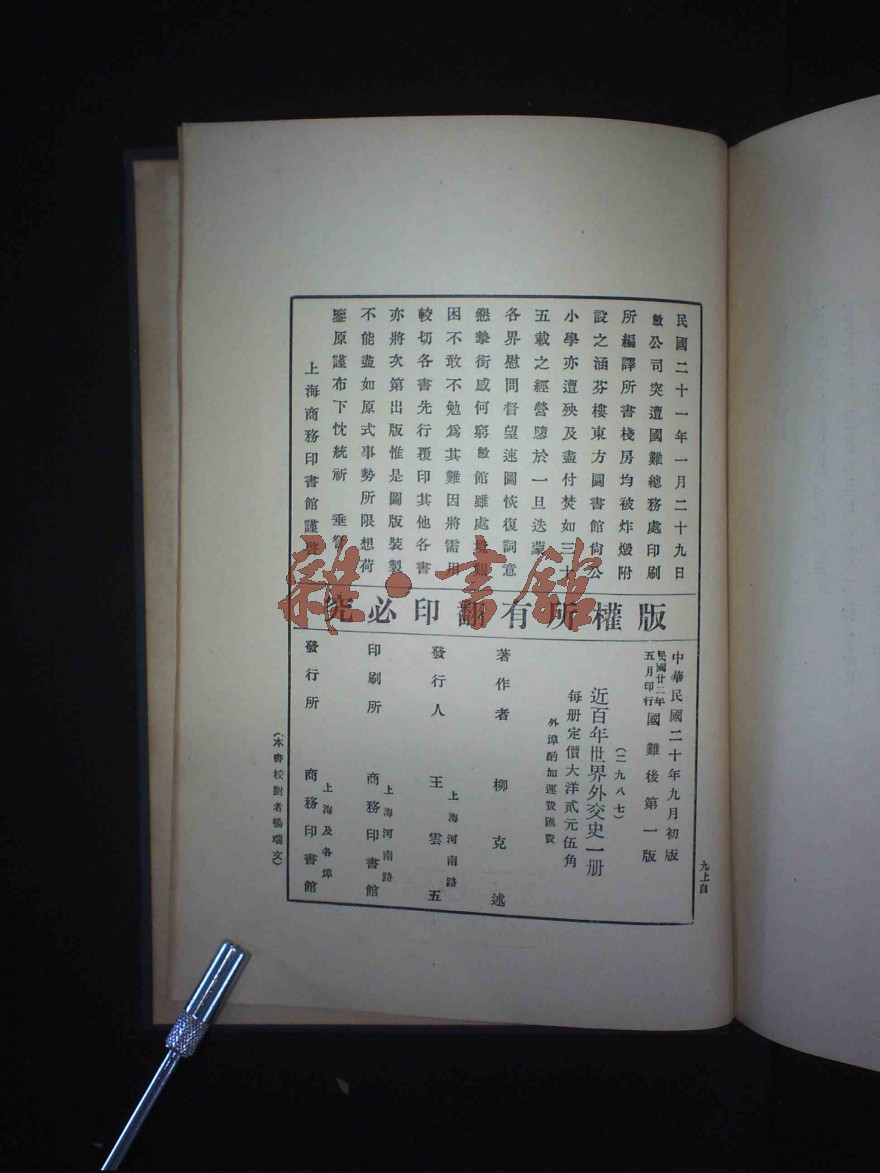 民國二十一年一月二十九日
敝公司突遭國難總務處印刷
所編譯所書棧房均被炸燬附
設之涵芬樓東方圖書館尙公
小學亦遭殃及盡付焚如三十
五載之經營隳於一旦迭蒙
各界慰問督望速圖恢復詞意
懇摯銜感何窮敝館雖處境艱
困不敢不勉爲其難因將需用
較切各書先行覆印其他各書
亦將次第出版惟是圖版裝製
不能盡如原式事勢所限想荷
鑒原謹布下忱統祈 垂詧
上海商務印書館謹啓
版權所有翻印必究
中華民國二十年九月初版
民國廿二年五月印行國難後第一版
(二九八七)
近百年世界外交史一册
每册定價大洋貳元伍角
外埠酌加運費匯費
著作者 柳克述
發行人 上海河南路 王雲五
印刷所 上海河南路 商務印書館
發行所 上海及各埠 商務印書館
(本書校對者楊瑞文)
九上自
雜·書館